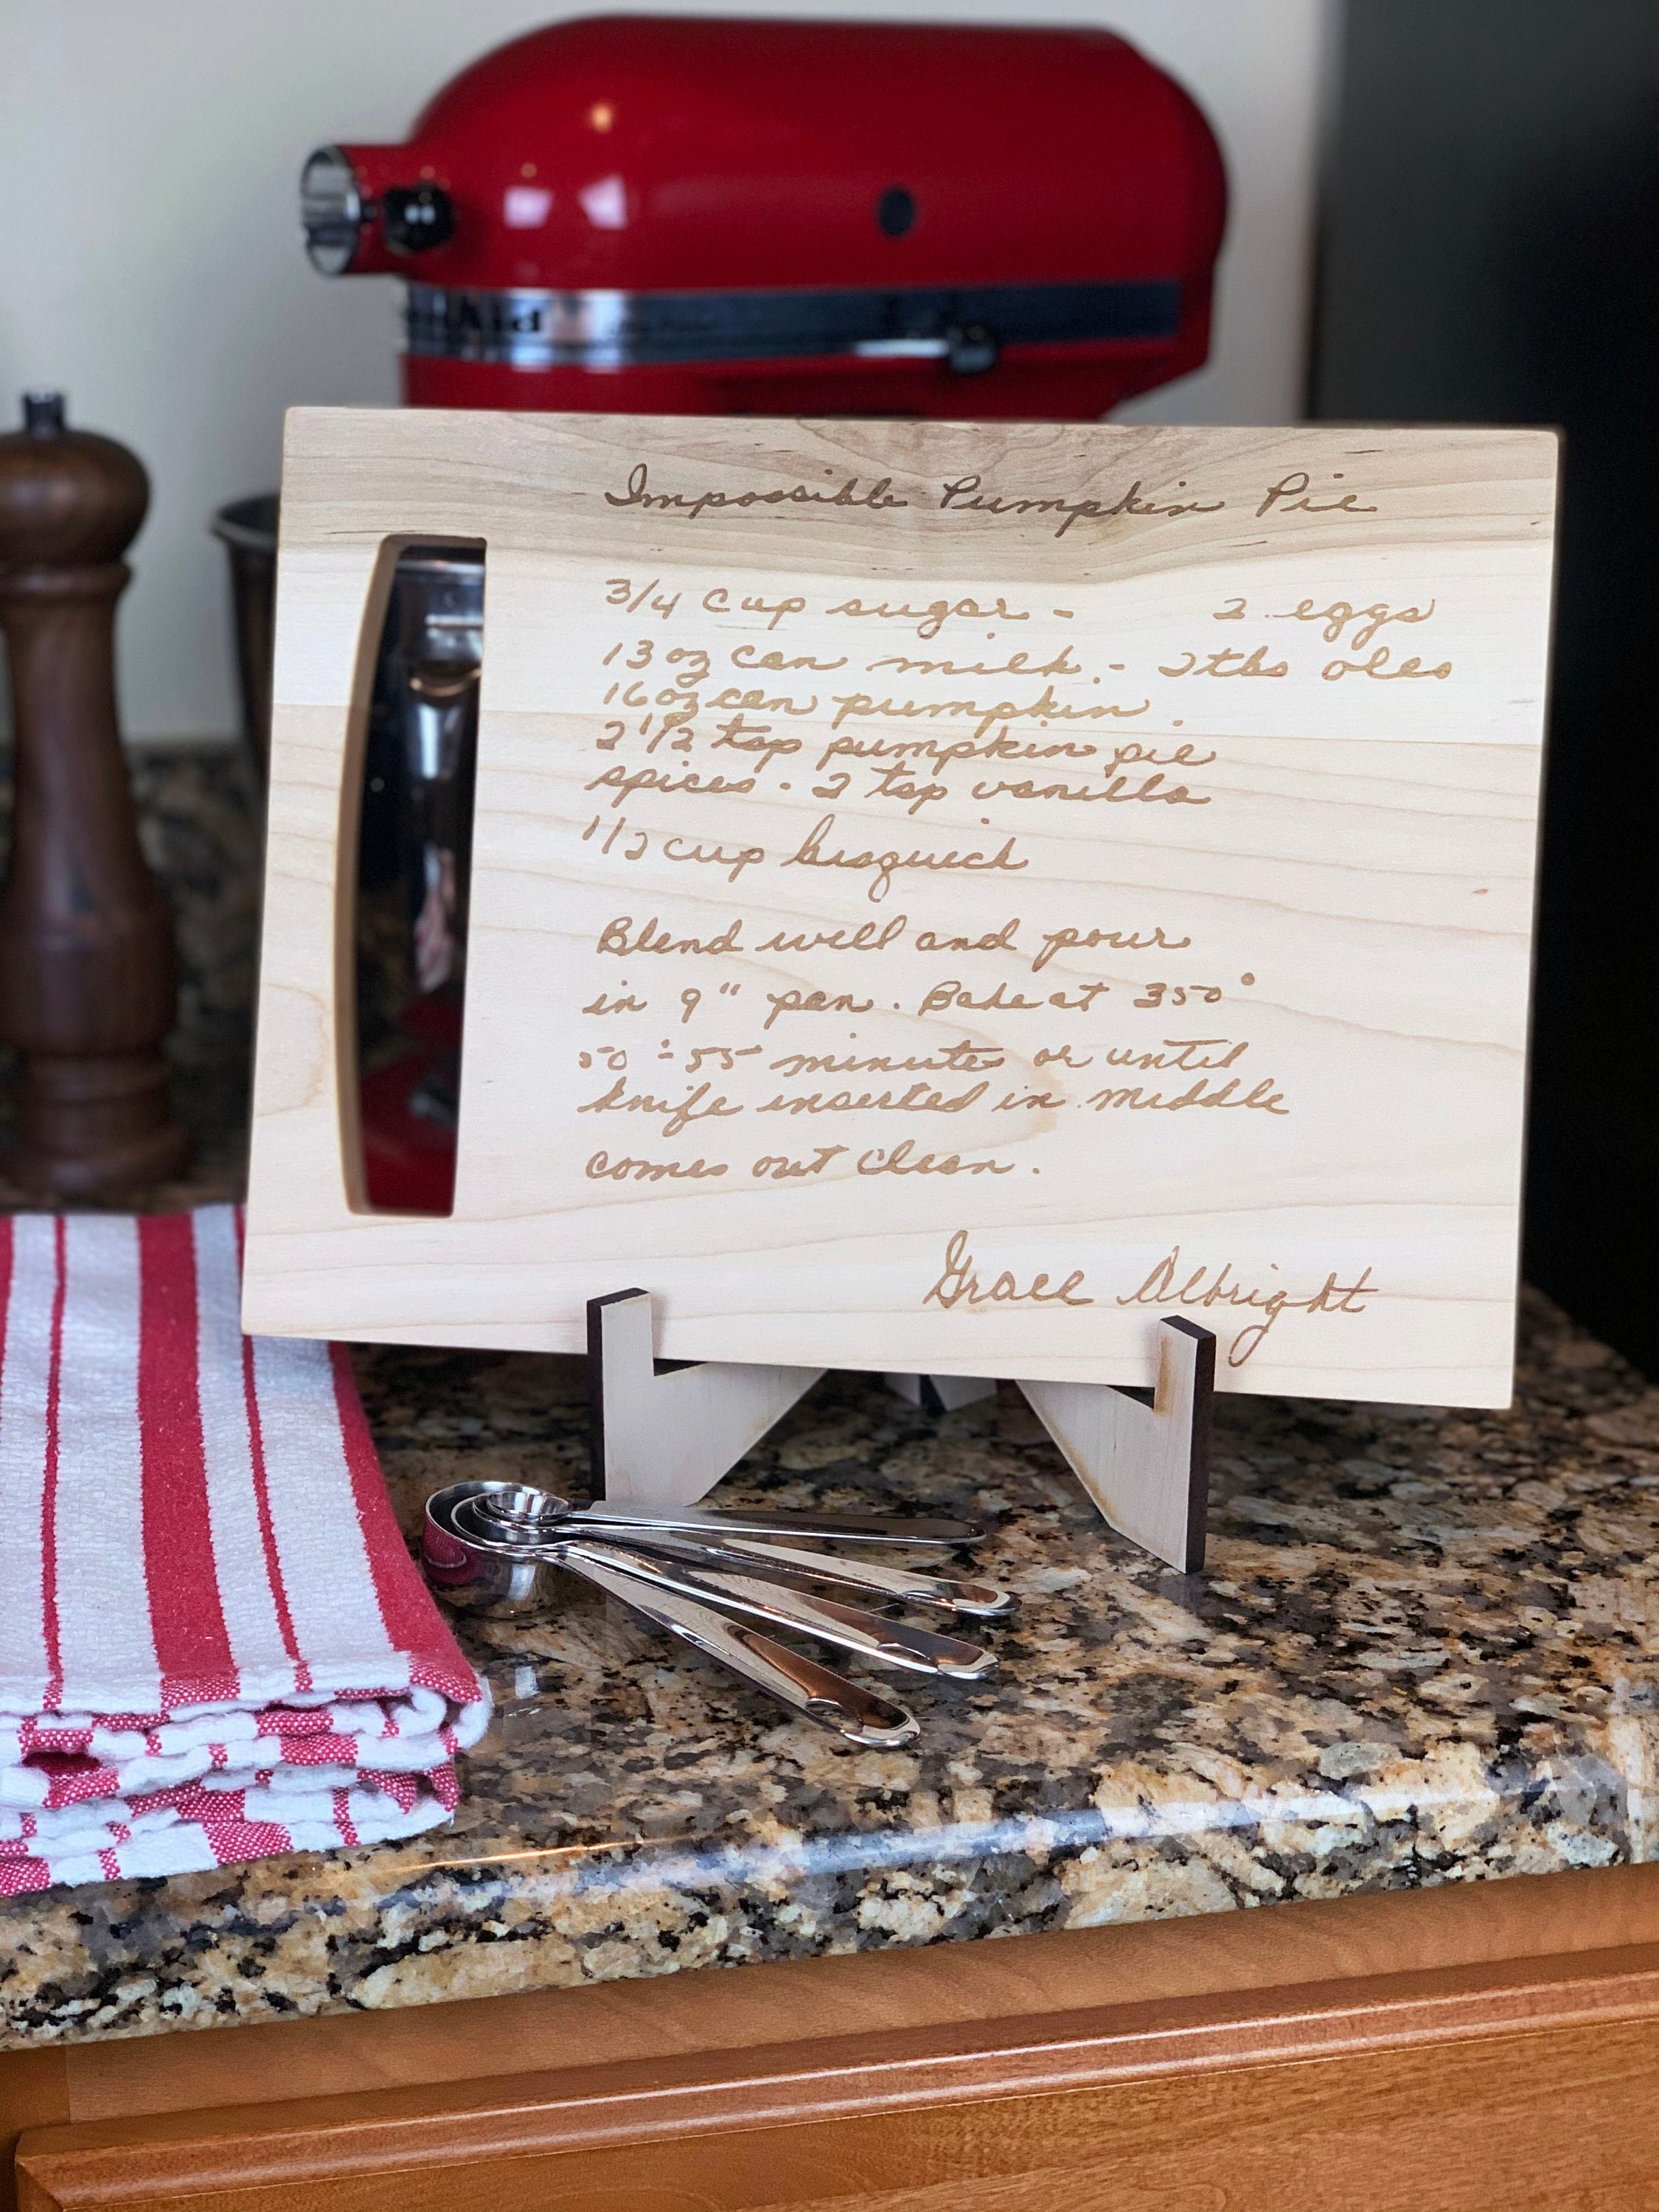 enAid
Impossible Pumpkin Pie
3/4 cup sugar - 2 eggs
13 oz can milk. - 2 tbs oleo
16 oz can pumpkin.
2 1/2 tsp pumpkin pie
spices. 2 tsp vanilla
1/2 cup bisquick
Blend well and pour
in 9" pan. Bake at 350°
50 - 55 minutes or until
knife inserted in middle
comes out clean.
Grace Albright